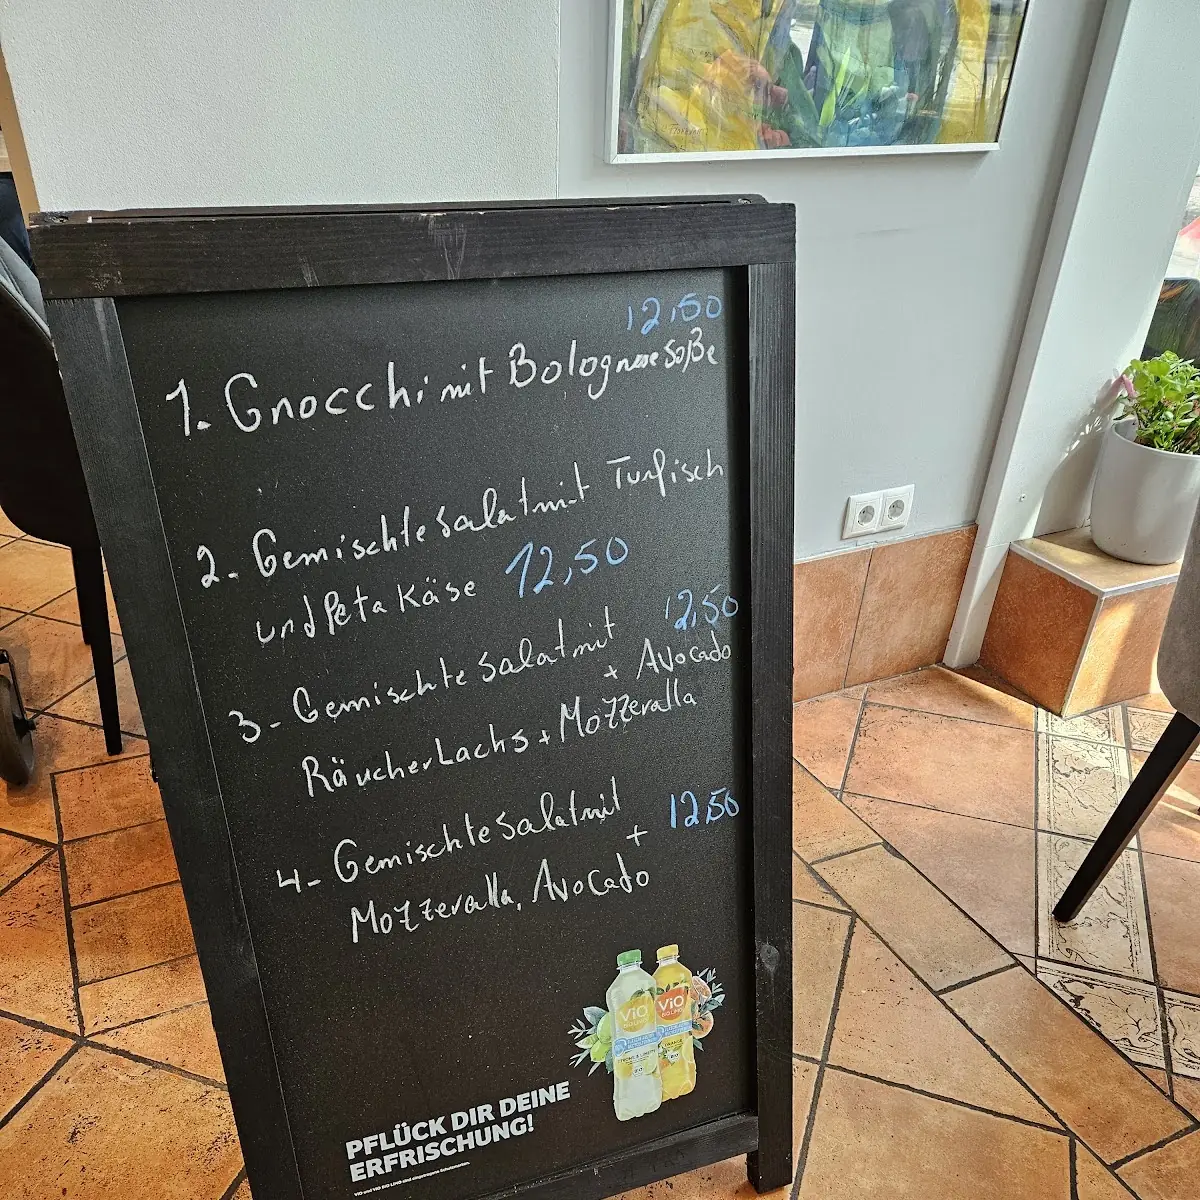 12,50
1. Gnocchi mit Bolognese Soße
2- Gemischte Salat mit Tunfisch
und Feta Käse 12,50
12,50
3- Gemischte Salat mit
+ Avocado
RäucherLachs + Mozzeralla
4- Gemischte Salat mit + 12,50
Mozzeralla, Avocado
ViO
BiO LiMO
ViO
BiO LiMO
PFLÜCK DIR DEINE
ERFRISCHUNG!